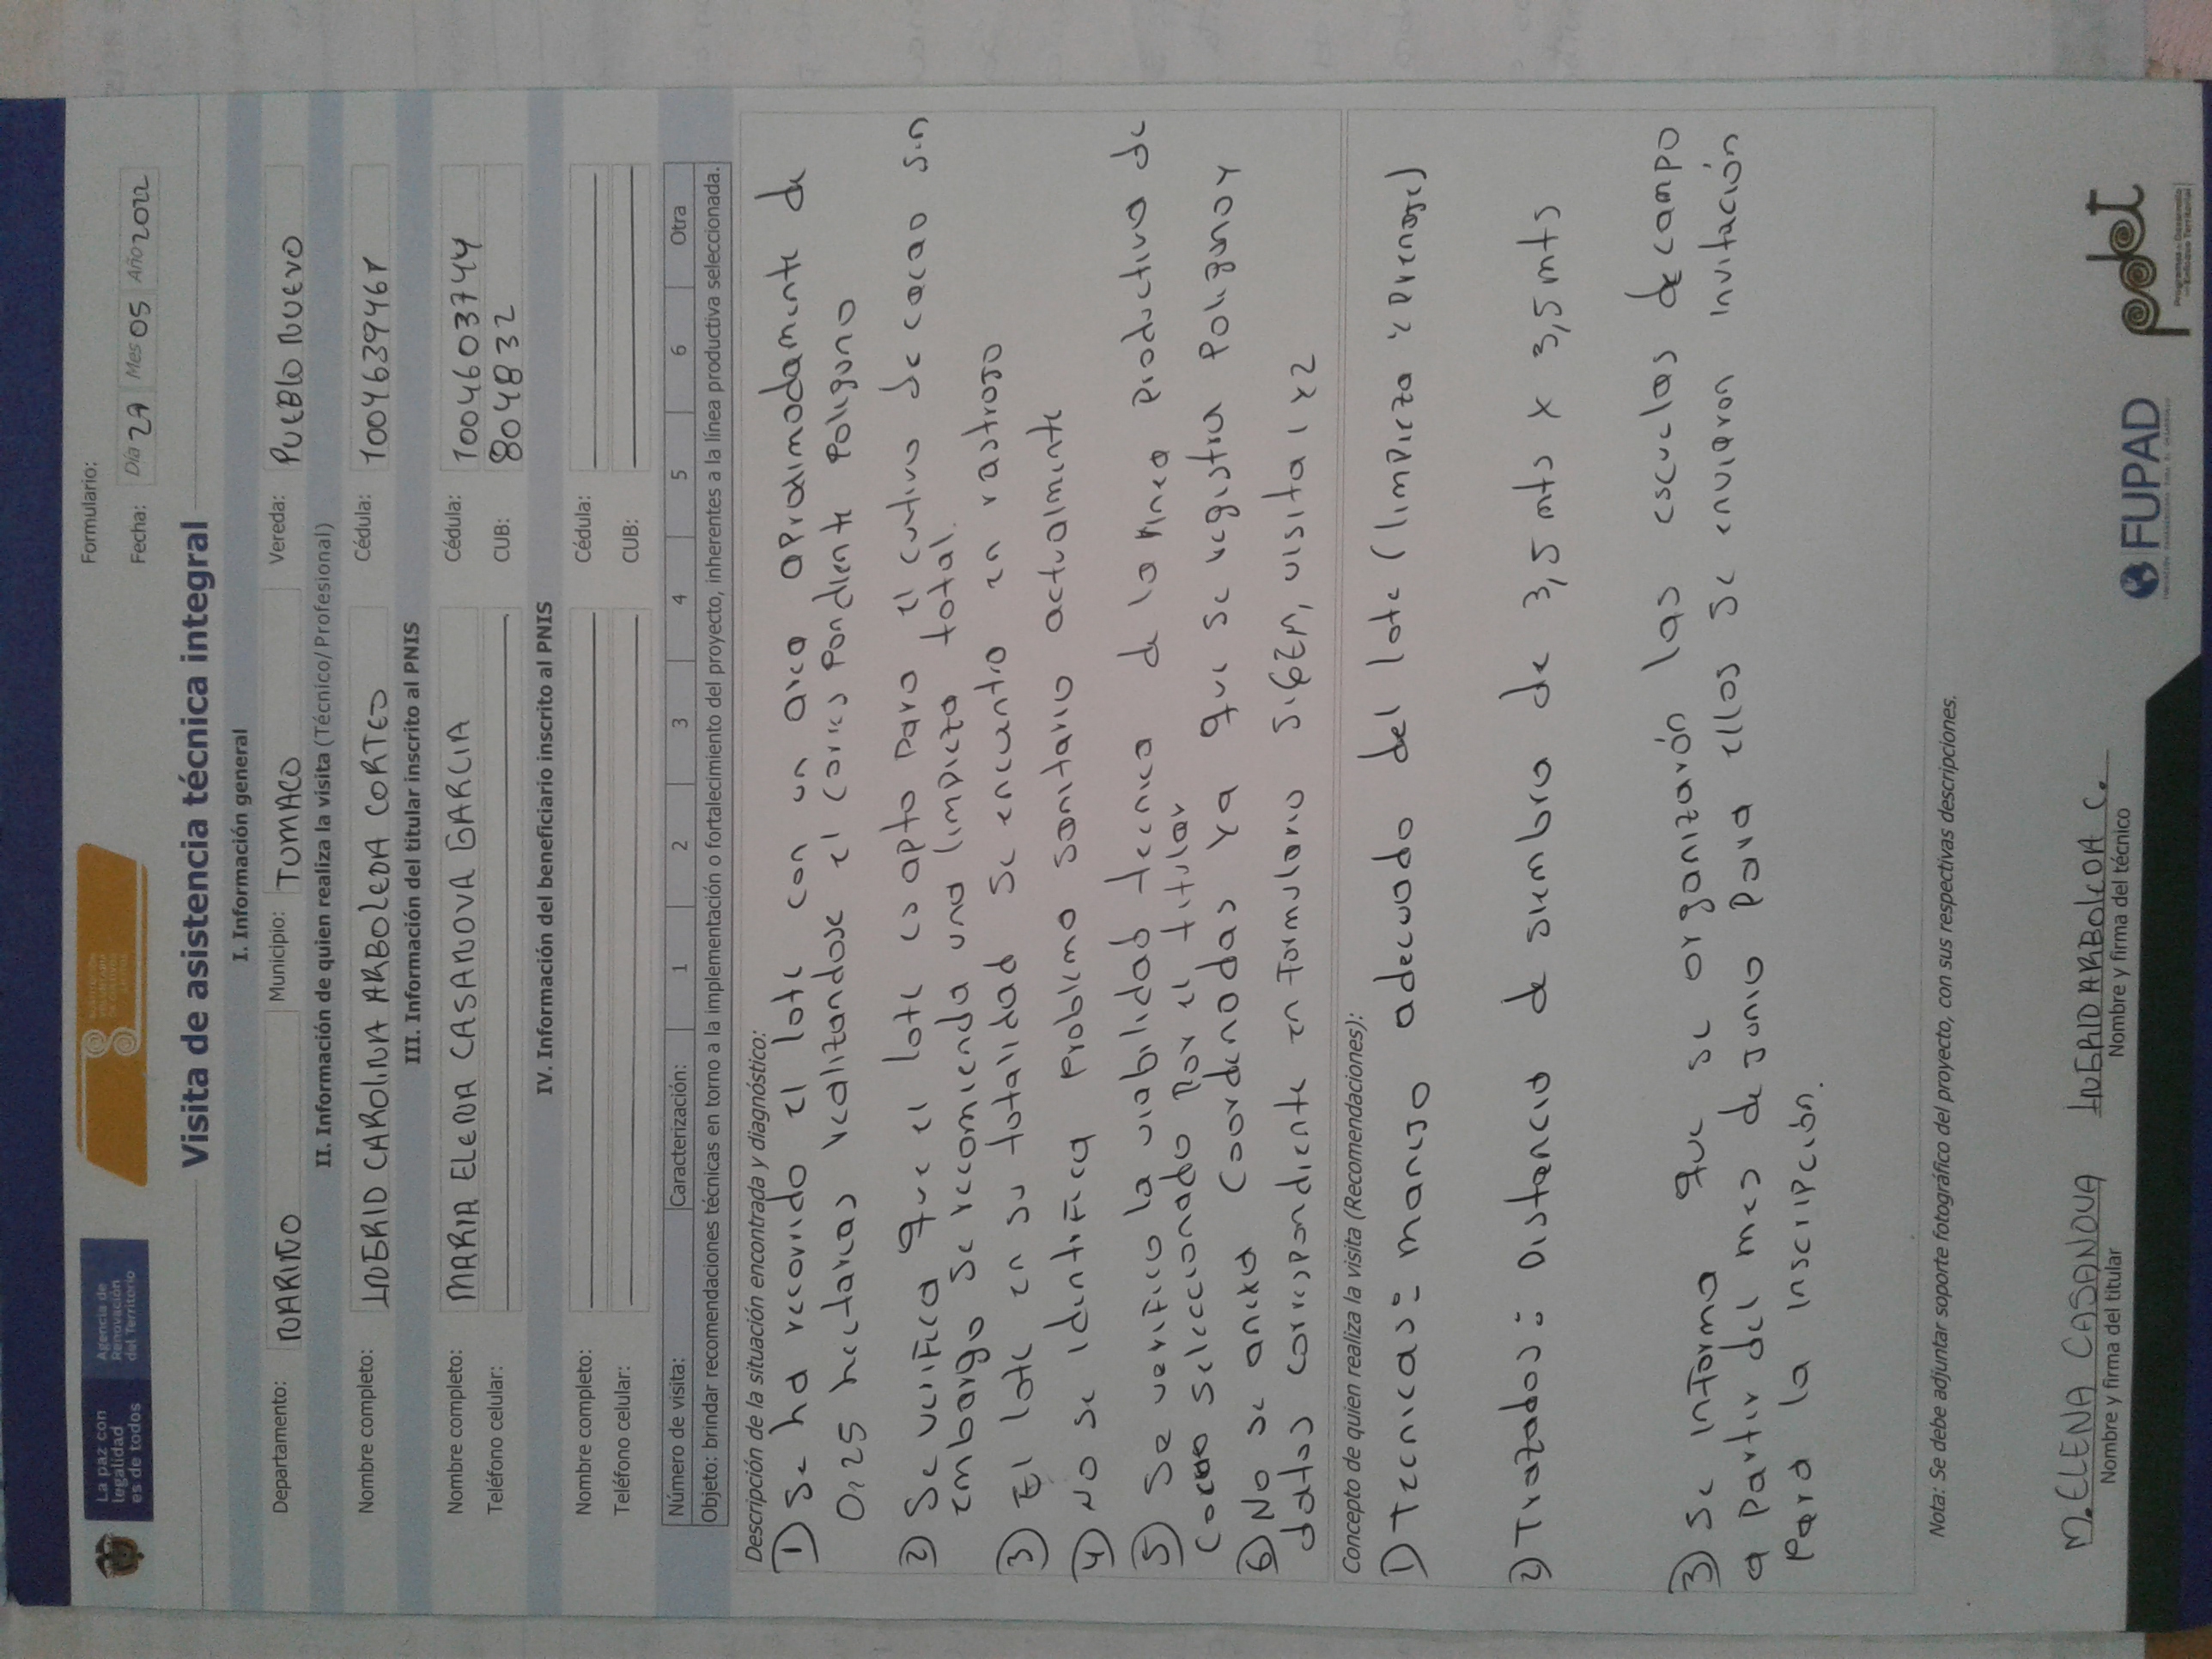 La paz con
legalidad
es de todos
Agencia de
Renovación
del Territorio
SUSTITUCIÓN
VOLUNTARIA
DE CULTIVOS
ILÍCITOS
Formulario:
Fecha: Día 27 Mes 05 Año 2022
Visita de asistencia técnica integral
I. Información general
Departamento: NARIÑO Municipio: TUMACO Vereda: PUEBLO NUEVO
II. Información de quien realiza la visita (Técnico/Profesional)
Nombre completo: INGRID CAROLINA ARBOLEDA CORTES Cédula:
III. Información del titular inscrito al PNIS
Nombre completo: MARIA ELENA CASANOVA GARCIA Cédula: 1004603744
Teléfono celular: CUB: 8048832
IV. Información del beneficiario inscrito al PNIS
Nombre completo: Cédula:
Teléfono celular: CUB:
Número de visita: Caracterización: 1 2 3 4 5 6 Otra
Objeto: brindar recomendaciones técnicas en torno a la implementación o fortalecimiento del proyecto, inherentes a la línea productiva seleccionada.
Descripción de la situación encontrada y diagnóstico:
1) Se ha recorrido el lote con un area aprodimodamente de
0,25 hectareas realizandose el corres pondiente poligono
2) Se verifica que el lote es apto para el cultivo de cacao sin
embargo se recomienda una limpieza total.
3) El lote en su totalidad se encuentra en rastrojo
4) No se identifica problema sanitario actualmente
5) Se verifico la viabilidad tecnica de la linea productiva de
Cacao seleccionado por el titular
6) No se anexa coordenadas ya que se registra poligono y
datos correspondiente en formulario SIGEM, visita 1 y 2
Concepto de quien realiza la visita (Recomendaciones):
1) Tecnicas: manejo adecuado del lote (limpieza y Drenajes)
2) Trazados: Distancia de siembra de 3,5 mts x 3,5 mts
3) se informa que se organizarón las escuelas de campo
a partir del mes de junio para ellos se enviaron invitación
para la inscripción.
Nota: Se debe adjuntar soporte fotográfico del proyecto, con sus respectivas descripciones.
M. ELENA CASANOVA INGRID ARBOLEDA C.
Nombre y firma del titular Nombre y firma del técnico
FUPAD
pdet
Programas de Desarrollo
con Enfoque Territorial